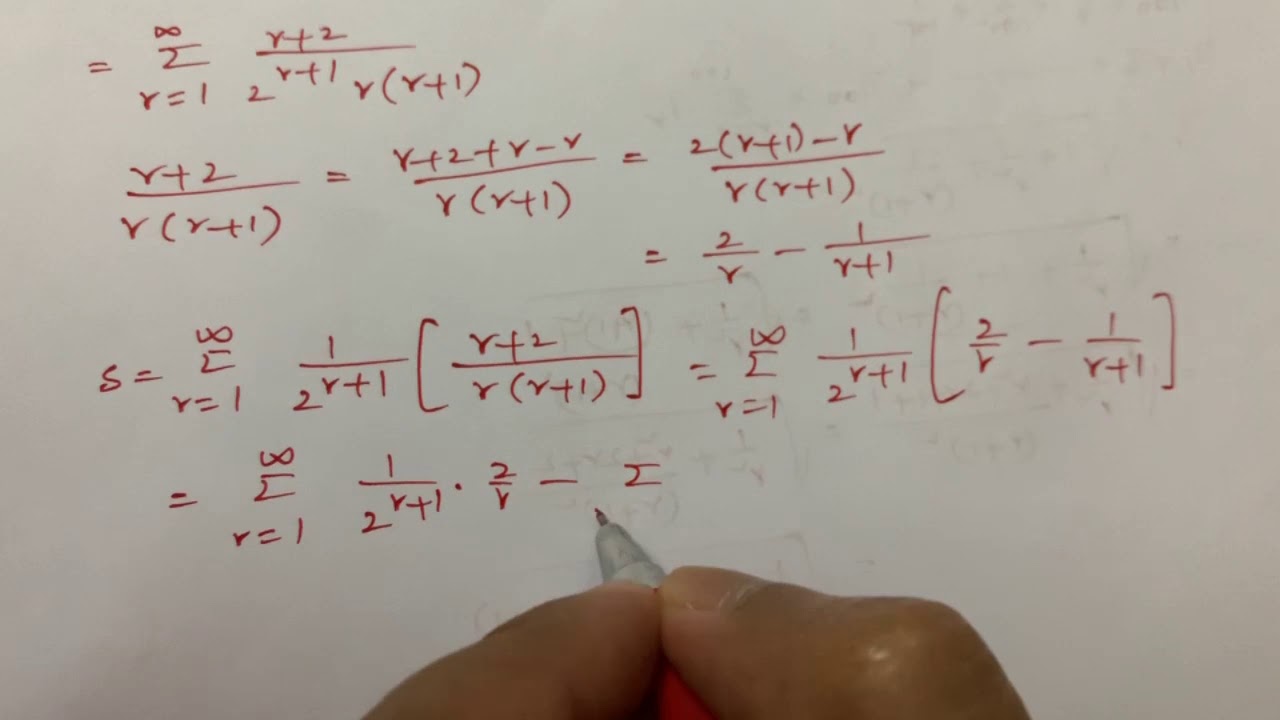 = ∞ Σ r=1 (r+2)/(2^(r+1) r(r+1))
(r+2)/(r(r+1)) = (r+2+r-r)/(r(r+1)) = (2(r+1)-r)/(r(r+1))
= 2/r - 1/(r+1)
S = ∞ Σ r=1 1/2^(r+1) [(r+2)/(r(r+1))] = ∞ Σ r=1 1/2^(r+1) [2/r - 1/(r+1)]
= ∞ Σ r=1 1/2^(r+1) · 2/r - Σ